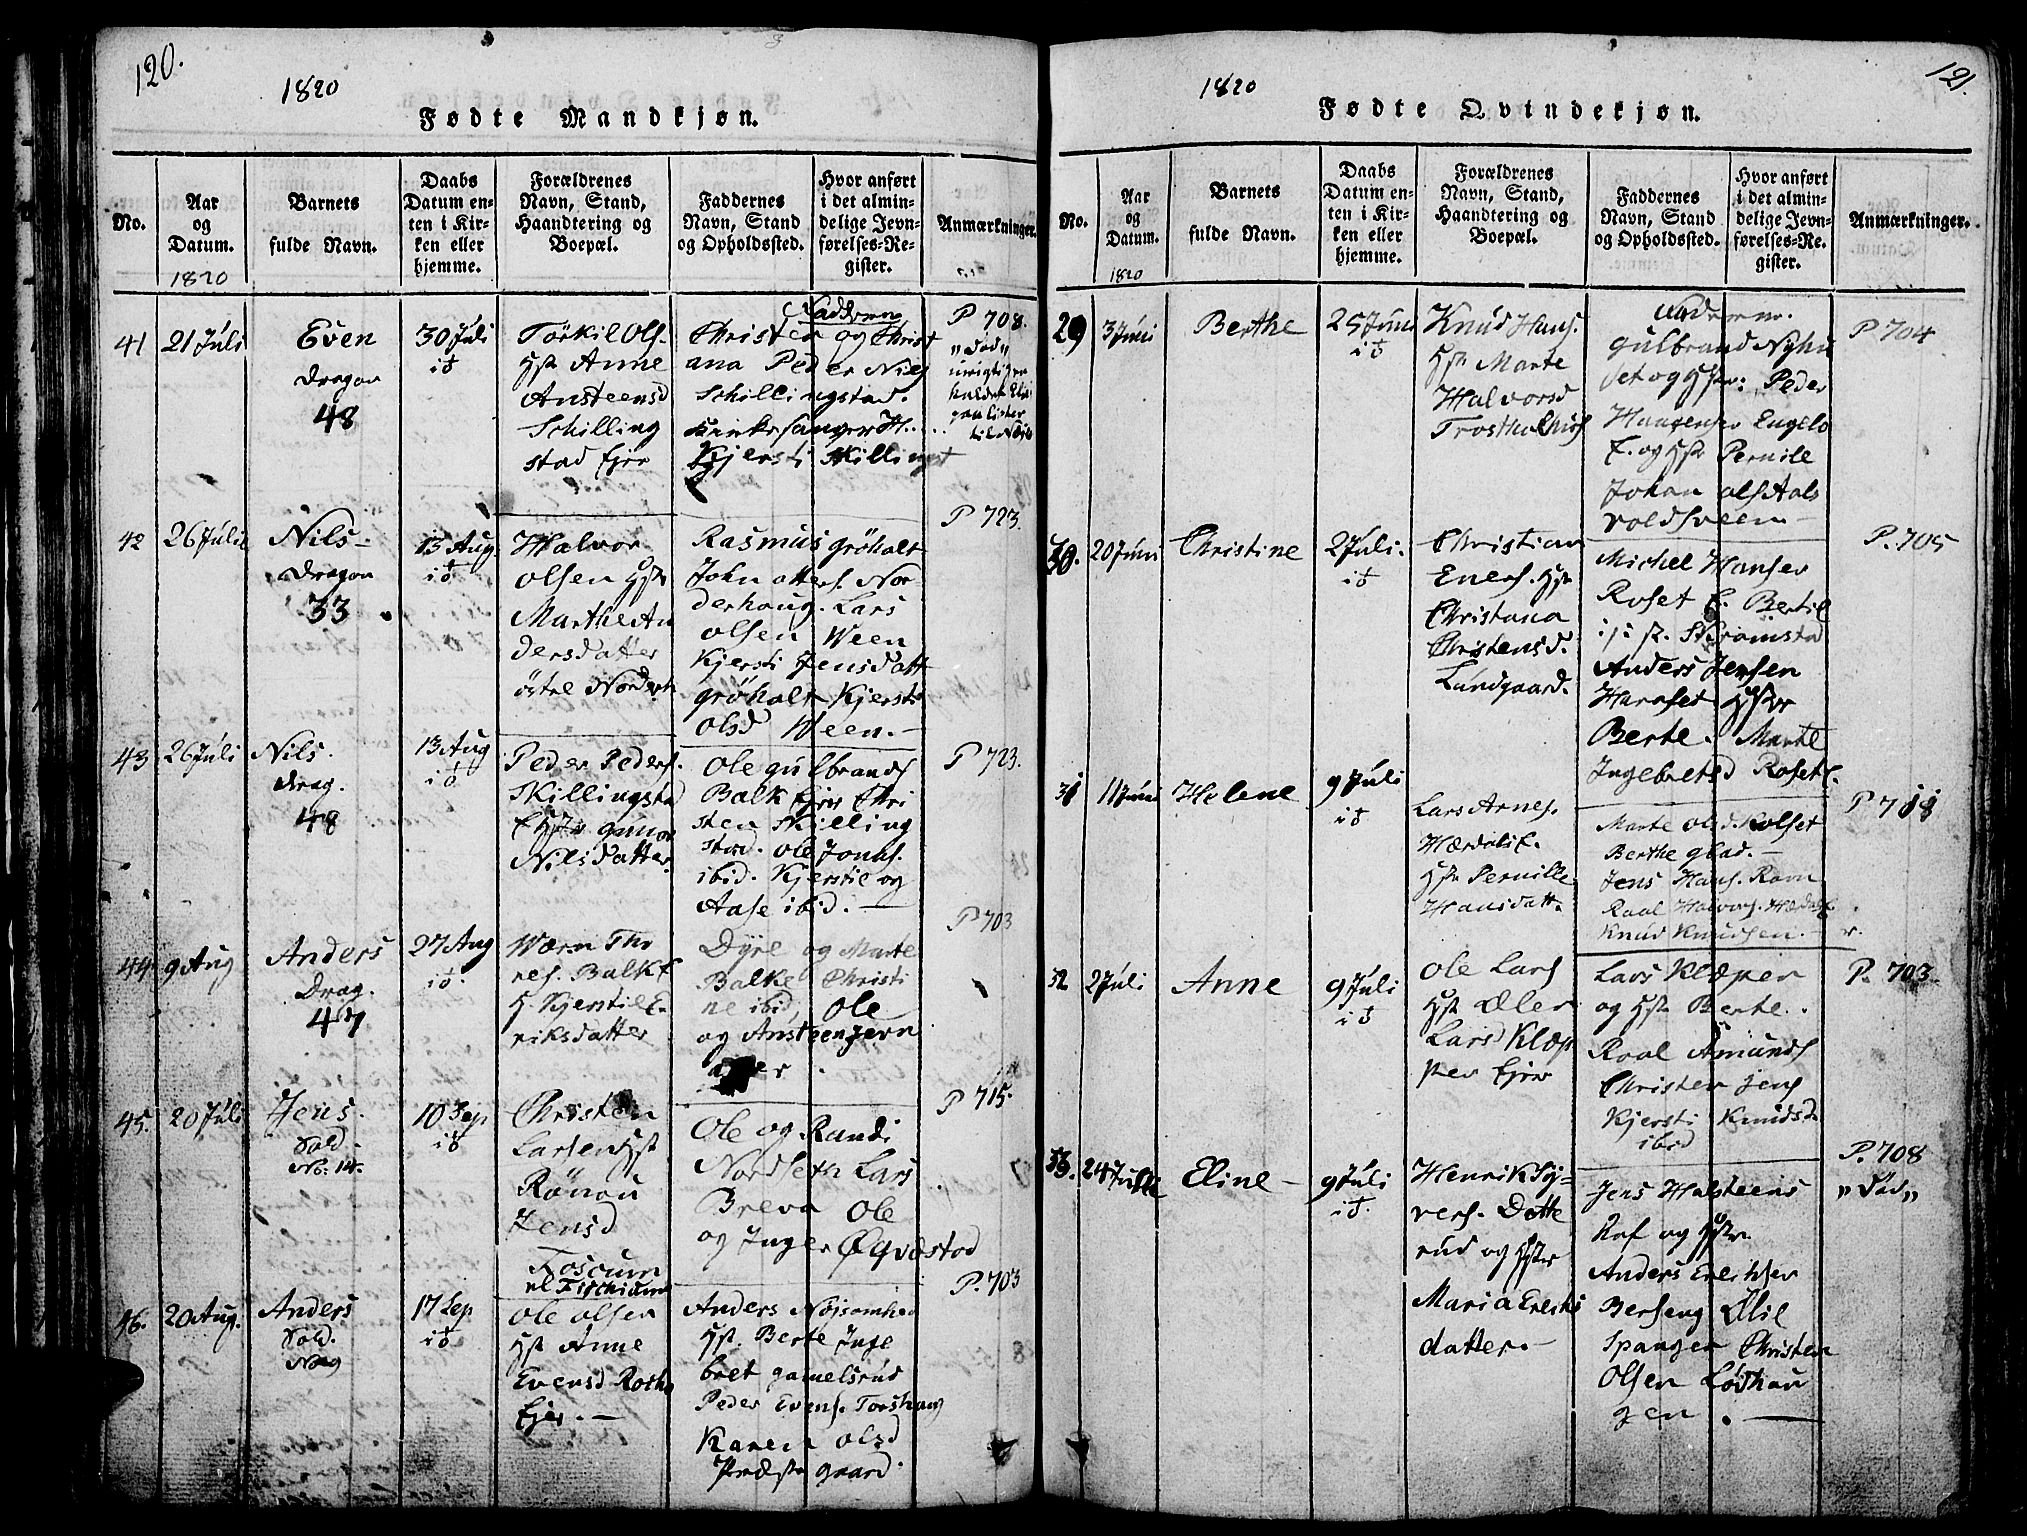 120.
1820
Fødte Mandkjøn.
No.
Aar
og
Datum.
1820
Barnets
fulde Navn.
Daabs
Datum en-
ten i Kir-
ken eller
hjemme.
Forældrenes
Navn, Stand,
Haandtering og
Boepæl.
Faddernes
Navn, Stand
og Opholdssted.
Hvor anført
i det almin-
delige Jevn-
førelses-Re-
gister.
Anmærkninger.
41
21 Juli
Even
Dragon
48
30 Juli
Torkil Ols.
Hst Anne
Ansteensd
Schilling
stad Ejer
Fadderne
Christen og Christ
ana Peder Nils
Schillingstad.
Kirkesanger H....
Kjersti Skillingst
P 708.
„Død„
42
26 Juli
Nils-
Dragon
33
13 Aug
Halvor
Olsen Hstr
Marthe An
dersdatter
östre
Rasmus Gröholt
John Otters. Nor
derhoug. Lars
Olsen Ween
Kjersti Jensdatt
Gröholt Kjersti
Olsd Ween.-
P 723.
43
26 Juli
Nils.
Drag.
48
13 Aug
Peder Peders.
Skillingsta
Nilsdatter
Ole Gulbrands
Balk Ejer Chri
sten Skilling
stad. Ole Jonas.
ibid. Kjersti og
Aase ibid.-
P 723.
44
9 Aug
Anders
Drag.
47
27 Aug
res. Balk E
H. Kjersti E-
riksdatter
Dyre og Marte
Balke Christi
ne ibid, Ole
og Ansteen
P 703
45.
20 Juli
Jens.
Sold.
No. 14.
10 Sep
Christen
Larsen Hst
Rönou
Jensd
Foscum
Ole og Randi
Nordseth Lars
Breva Ole
og Inger Øqvæstad
P 715.
46.
20 Aug.
Anders
Sold.
17 Sep
Ole Olsen
Hst Anne
Evensd
Ejer.-
Anders Nöjsomhed
Hst. Berte Inge
bret Gamelsrud
Peder Evens. Torshaug
Karen Olsd
Præstegaard.
P. 703
121.
1820
Fødte Qvindekjøn.
No.
Aar
og
Datum.
1820
Barnets
fulde Navn.
Daabs
Datum en-
ten i Kir-
ken eller
hjemme.
Forældrenes
Navn, Stand,
Haandtering og
Boepæl.
Faddernes
Navn, Stand
og Opholdssted.
Hvor anført
i det almin-
delige Jevn-
førelses-Re-
gister.
Anmærkninger.
29
3 Juni
Berthe
25 Juni
Knud Hans.
Hst Marte
Halvorsd
Fadderne.
Gulbrand Nyhu
set og Hstr: Peder
Haagensen Engelo
E. og Hst Pernille
Johan Ols Aals
voldsveen-
P 704
30.
20 Juni
Christine
2 Juli.
Christian
Eners. Hst
Christiana
Christensd.
Lundgaard.
Michel Hansen
Roset E. Bertil
Anders Jensen
Haraset Hstr
Berte. Marte
Ingebretsd Roset E.
P. 705
31
11 Juni
Helene
9 Juli
Lars Arnes.
Hst Pernille
Hansdatt.
Marte Olsd. Kolset
Berthe Glad.-
Jens Hans. Ravn
Roal Halvors.
Knud Knudsen.-
P 711
32
2 Juli
Anne
9 Juli
Ole Lars
Hst Eler
Larsd Klæp
per Ejer
Lars Klæper
og Hst Berte.
Roal Amunds
Christen Jens
Kjersti Knudsd.
ibid
P. 703
33.
24
Eline-
9 Juli
Henrik Sy-
vers. Dette
rud og Hstr
Maria Erichs
datter.-
Jens Halsteens
Raf og Hstr
Anders Erichsen
Berseng
Spangen Christen
Olsen Löshau
gen.-
P. 708
„Död„